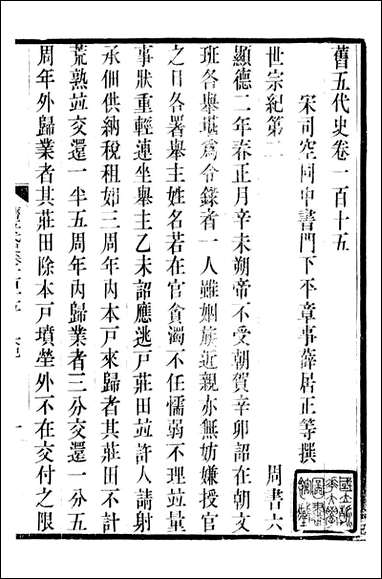 舊五代史卷一百十五
宋司空同中書門下平章事薛居正等撰
世宗紀第二 周書六
顯德二年春正月辛未朔帝不受朝賀辛卯詔在朝文
班各舉堪爲令錄者一人雖姻族近親亦無妨嫌授官
之日各署舉主姓名若在官貪濁不任懦弱不理竝量
事狀重輕連坐舉主乙未詔應逃戶莊田竝許人請射
承佃供納稅租如三周年內本戶來歸者其莊田不計
荒熟竝交還一半五周年內歸業者三分交還一分五
周年外歸業者其莊田除本戶墳塋外不在交付之限